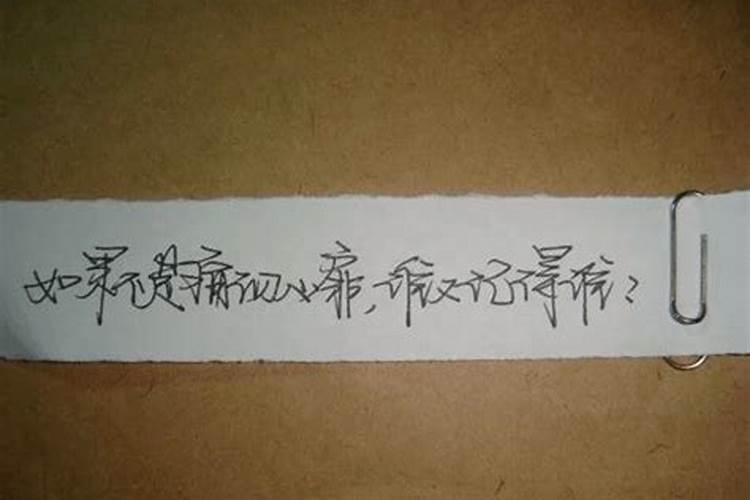 如果不是痛彻心扉，谁又记得谁？